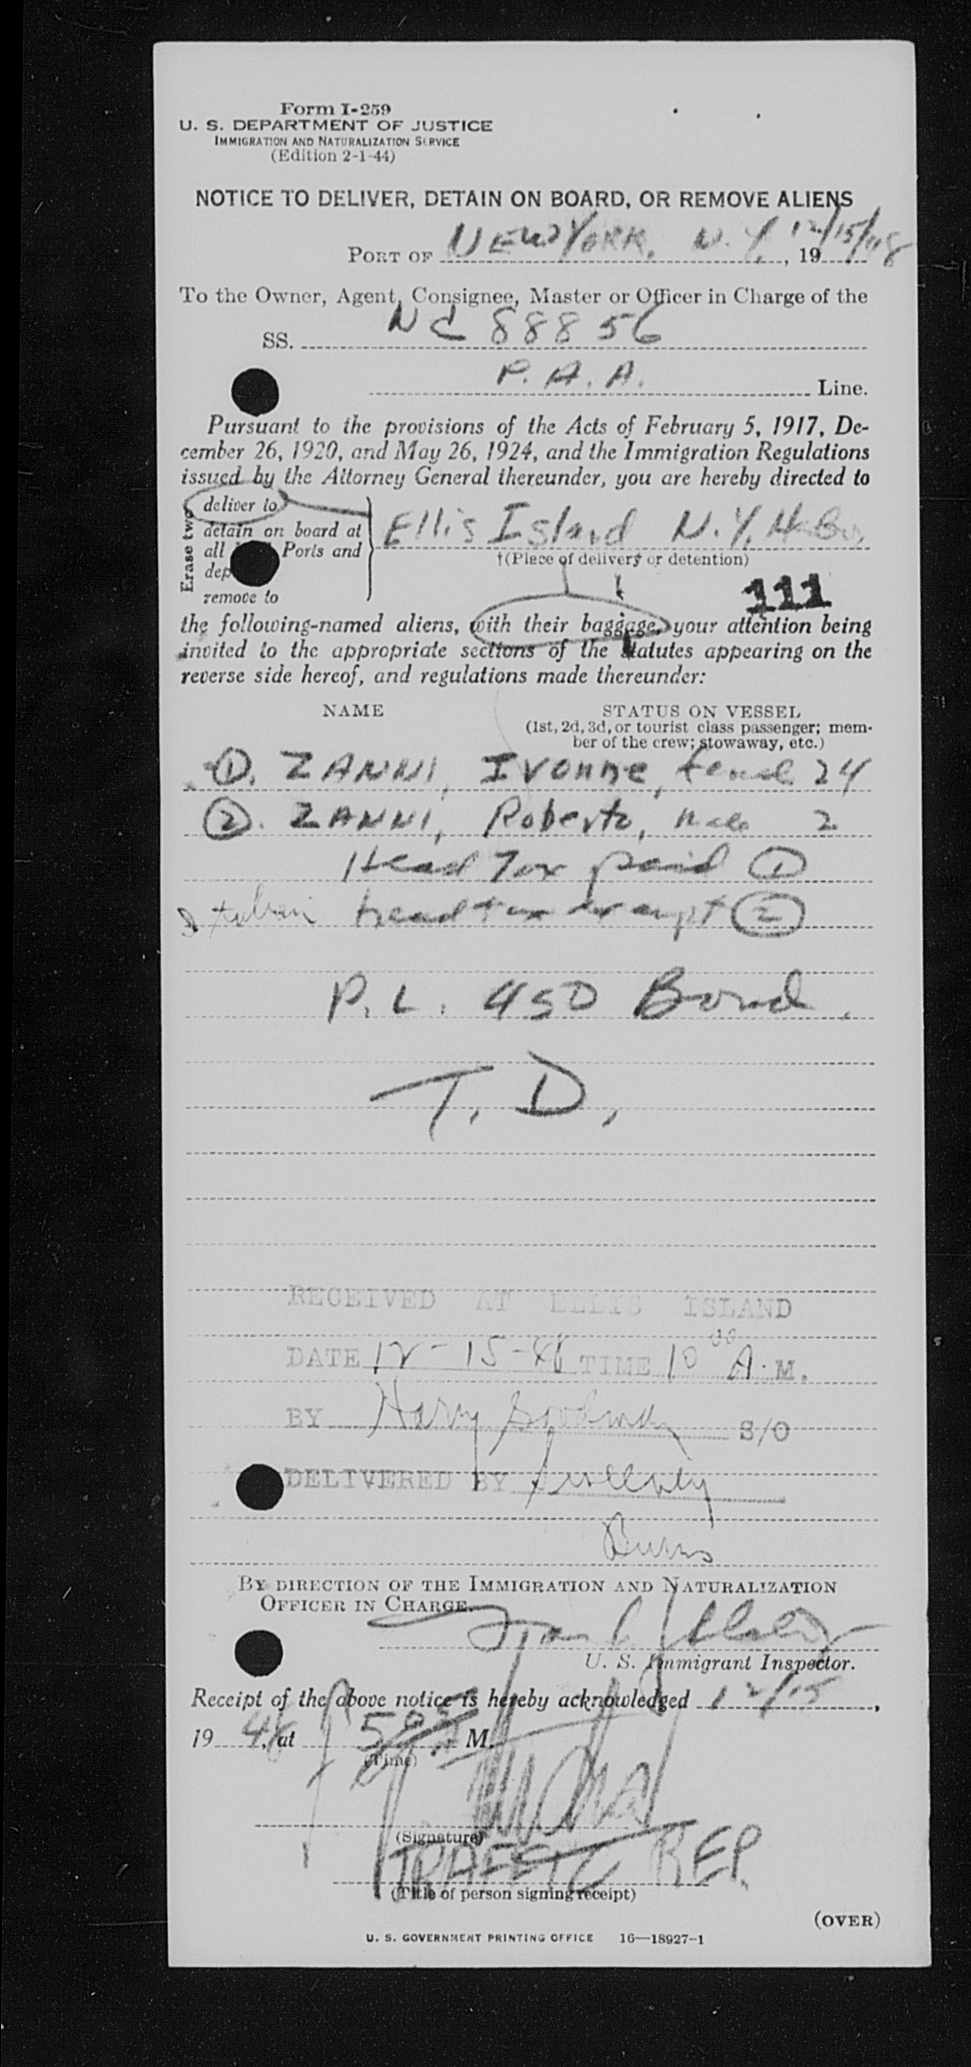 Form I-259
U. S. DEPARTMENT OF JUSTICE
IMMIGRATION AND NATURALIZATION SERVICE
(Edition 2-1-44)
NOTICE TO DELIVER, DETAIN ON BOARD, OR REMOVE ALIENS
PORT OF NEW YORK, N. Y. 12/15/48, 19
To the Owner, Agent, Consignee, Master or Officer in Charge of the
SS. NC 88856
P. A. A. Line.
Pursuant to the provisions of the Acts of February 5, 1917, De-
cember 26, 1920, and May 26, 1924, and the Immigration Regulations
issued by the Attorney General thereunder, you are hereby directed to
Erase two
deliver to
detain on board at
all Ports and
dep
remove to
Ellis Island N.Y.
†(Place of delivery or detention)
111
the following-named aliens, with their baggage, your attention being
invited to the appropriate sections of the statutes appearing on the
reverse side hereof, and regulations made thereunder:
NAME STATUS ON VESSEL
(1st, 2d, 3d, or tourist class passenger; mem-
ber of the crew; stowaway, etc.)
1. ZANNI, Ivonne, female 24
2. ZANNI, Roberto, male 2
Head Tax paid 1
head tax exempt 2
P. L. 450 Bond.
T. D.
RECEIVED AT ELLIS ISLAND
DATE 12-15-48 TIME 10 00 A. M.
BY Harry S/O
DELIVERED BY
Burns
BY DIRECTION OF THE IMMIGRATION AND NATURALIZATION
OFFICER IN CHARGE.
U. S. Immigrant Inspector.
Receipt of the above notice is hereby acknowledged 12/15,
19 48, at M.
(Time)
(Signature)
TRAFFIC REP.
(Title of person signing receipt)
(OVER)
U. S. GOVERNMENT PRINTING OFFICE 16—18927-1